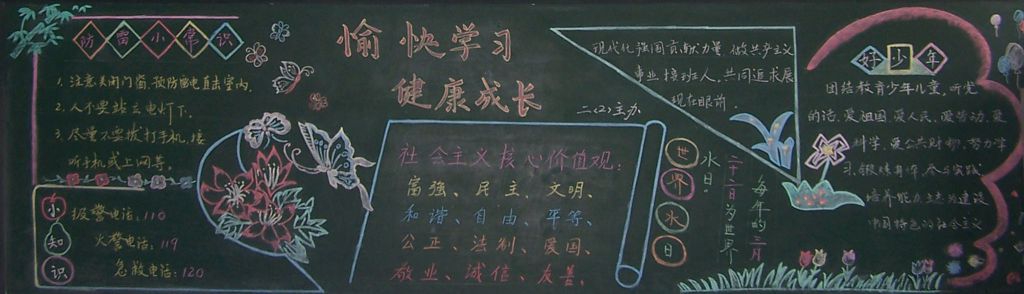 防雷小常识
1、注意关闭门窗,预防雷电直击室内。
2、人不要站立电灯下。
3、尽量不要拨打手机、接
听手机或上网等。
小知识
报警电话:110
火警电话:119
急救电话:120
愉快学习
健康成长
二(2)主办
社会主义核心价值观:
富强、民主、文明、
和谐、自由、平等、
公正、法制、爱国、
敬业、诚信、友善、
现代化强国贡献力量 做共产主义
事业接班人,共同追求展
现在眼前.
世界水日
每年的三月
二十二日为世界
水日.
好少年
团结教育少年儿童,听党
的话,爱祖国、爱人民、爱劳动、爱
科学、爱公共财物,努力学
习、锻炼身体、参与实践、
培养能力
中国特色的社会主义